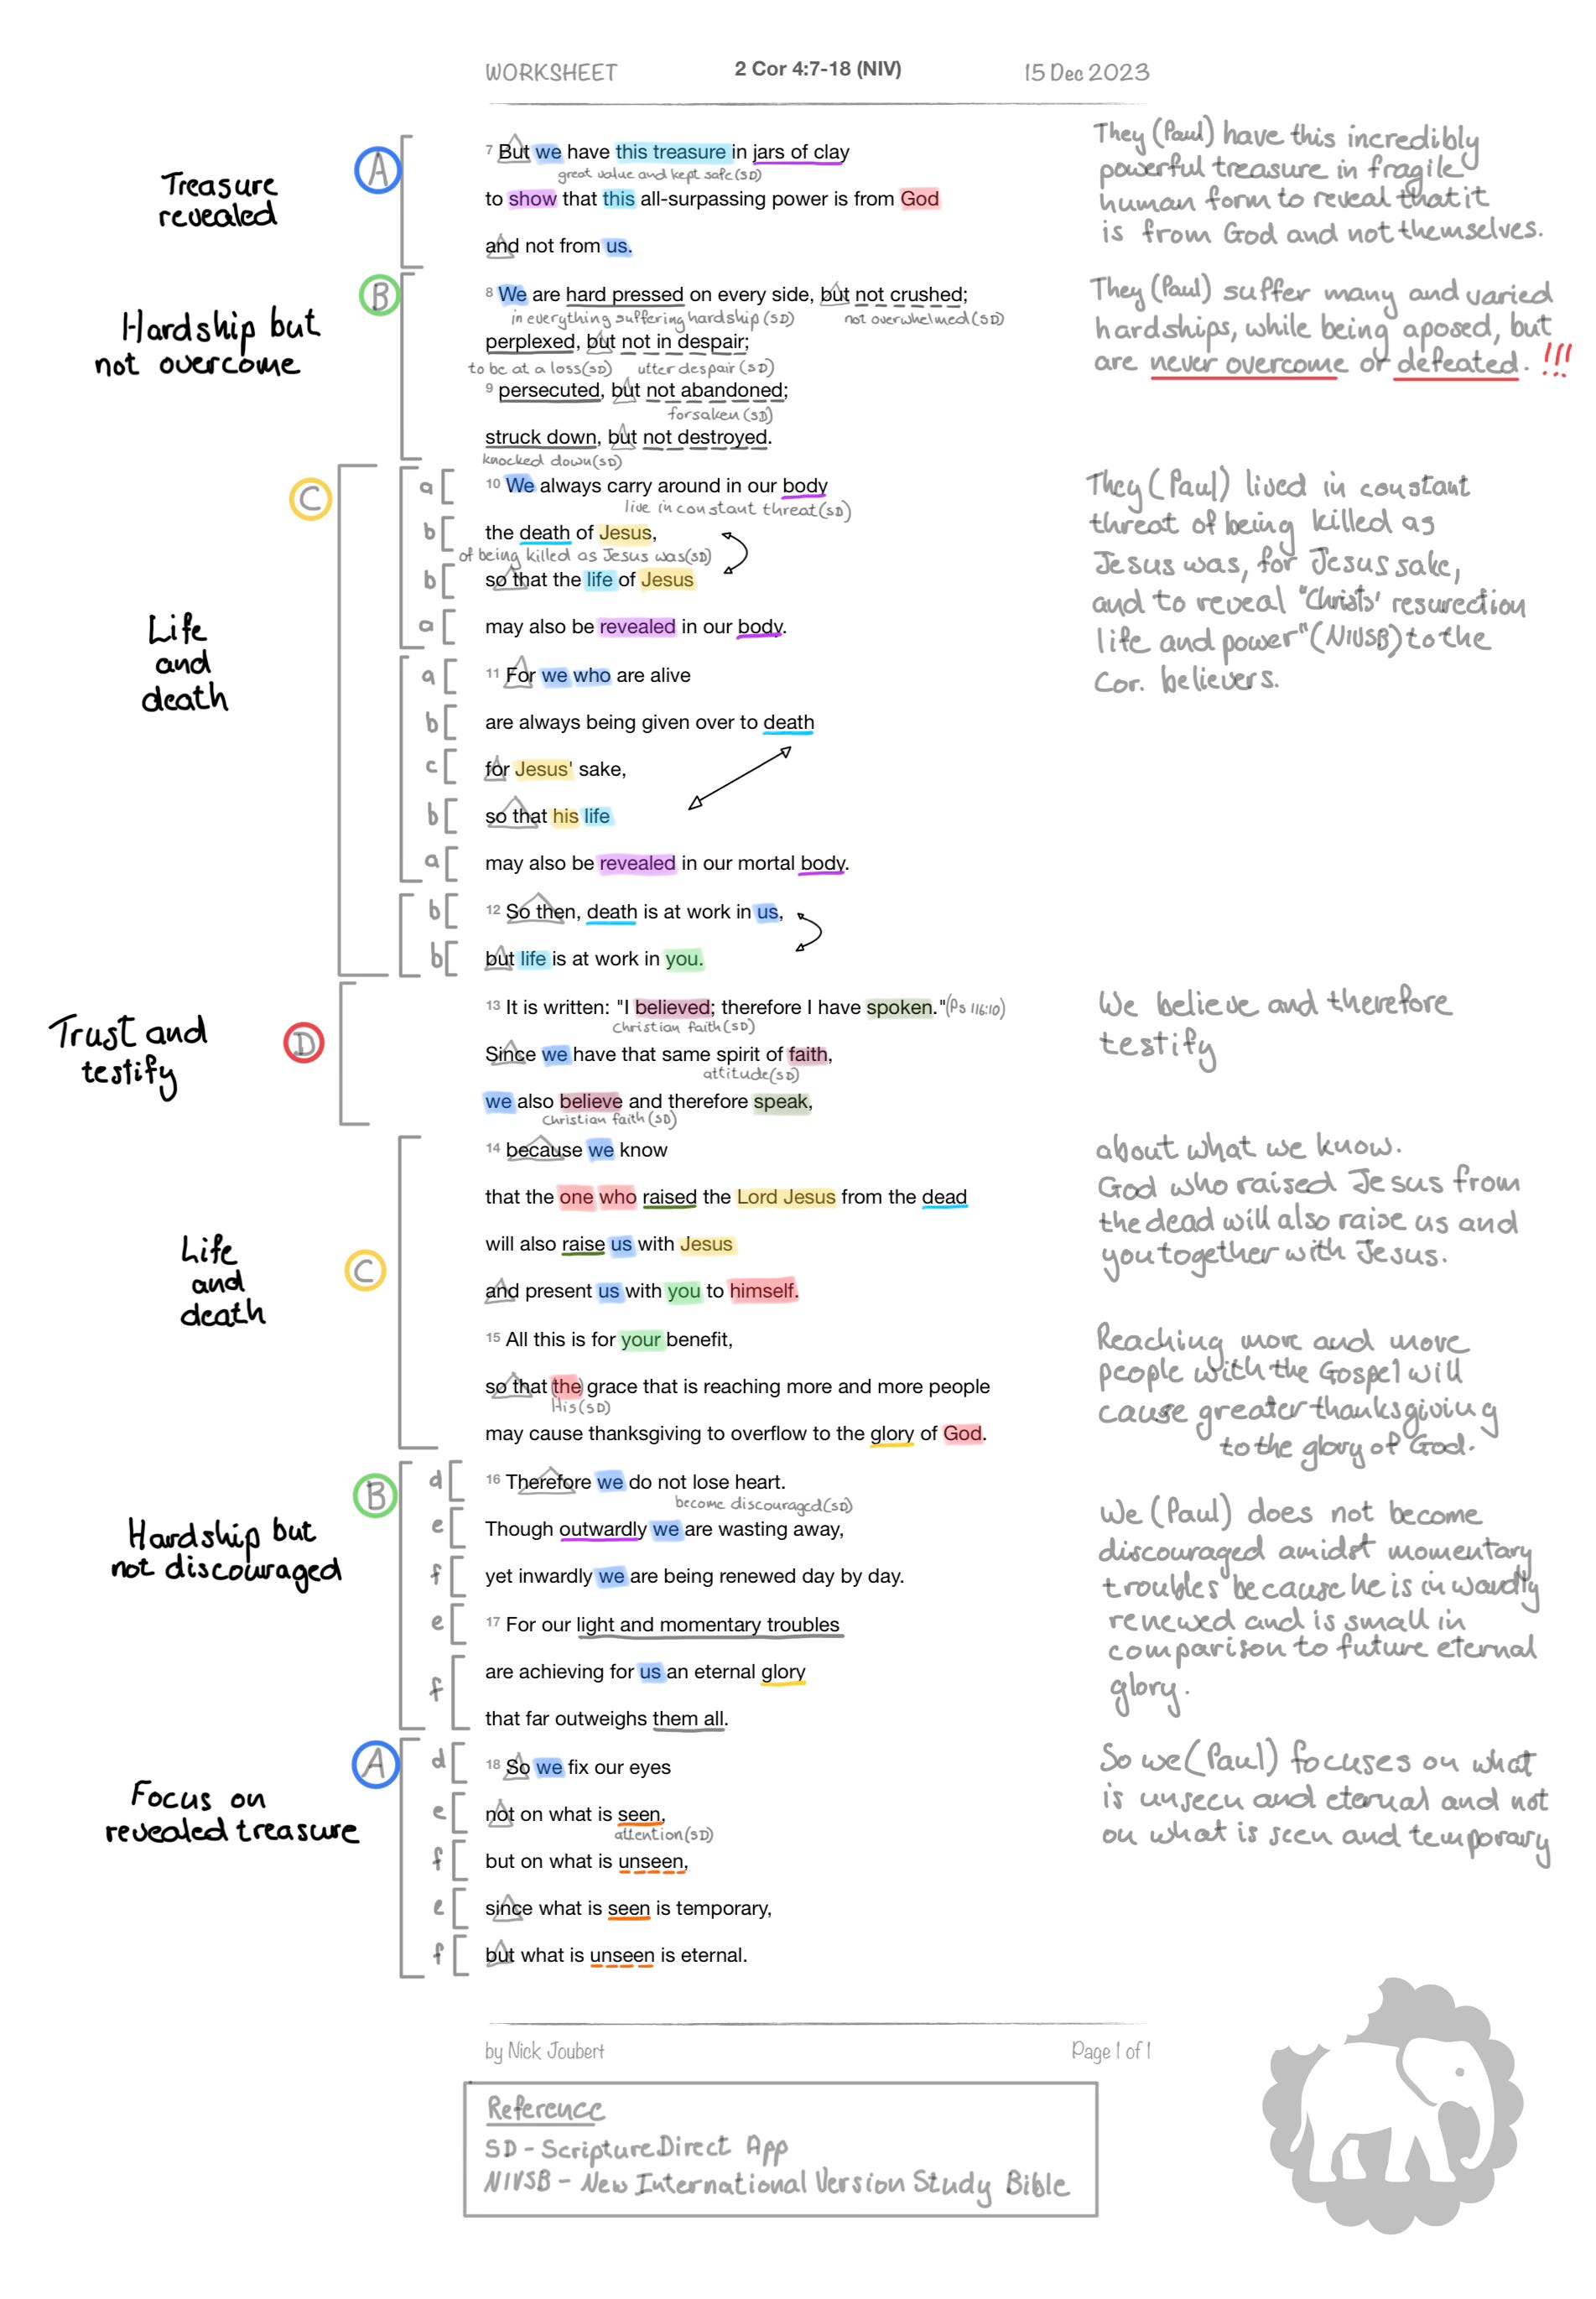 WORKSHEET 2 Cor 4:7-18 (NIV) 15 Dec 2023
A
Treasure
revealed
7 But we have this treasure in jars of clay
great value and kept safe (SD)
to show that this all-surpassing power is from God
and not from us.
They (Paul) have this incredibly
powerful treasure in fragile
human form to reveal that it
is from God and not themselves.
B
Hardship but
not overcome
8 We are hard pressed on every side, but not crushed;
in everything suffering hardship (SD) not overwhelmed (SD)
perplexed, but not in despair;
to be at a loss (SD) utter despair (SD)
9 persecuted, but not abandoned;
forsaken (SD)
struck down, but not destroyed.
knocked down (SD)
They (Paul) suffer many and varied
hardships, while being aposed, but
are never overcome or defeated. !!!
C
Life
and
death
a 10 We always carry around in our body
live in constant threat (SD)
b the death of Jesus,
of being killed as Jesus was (SD)
b so that the life of Jesus
a may also be revealed in our body.
a 11 For we who are alive
b are always being given over to death
c for Jesus' sake,
b so that his life
a may also be revealed in our mortal body.
b 12 So then, death is at work in us,
b but life is at work in you.
They (Paul) lived in constant
threat of being killed as
Jesus was, for Jesus sake,
and to reveal "Christs' resurection
life and power" (NIVSB) to the
Cor. believers.
D
Trust and
testify
13 It is written: "I believed; therefore I have spoken." (Ps 116:10)
Christian faith (SD)
Since we have that same spirit of faith,
attitude (SD)
we also believe and therefore speak,
Christian faith (SD)
We believe and therefore
testify
C
Life
and
death
14 because we know
that the one who raised the Lord Jesus from the dead
will also raise us with Jesus
and present us with you to himself.
15 All this is for your benefit,
so that (the) grace that is reaching more and more people
His (SD)
may cause thanksgiving to overflow to the glory of God.
about what we know.
God who raised Jesus from
the dead will also raise us and
you together with Jesus.
Reaching more and more
people with the Gospel will
cause greater thanksgiving
to the glory of God.
B
Hardship but
not discouraged
d 16 Therefore we do not lose heart.
become discouraged (SD)
e Though outwardly we are wasting away,
f yet inwardly we are being renewed day by day.
e 17 For our light and momentary troubles
f are achieving for us an eternal glory
that far outweighs them all.
We (Paul) does not become
discouraged amidst momentary
troubles because he is inwardly
renewed and is small in
comparison to future eternal
glory.
A
Focus on
revealed treasure
d 18 So we fix our eyes
e not on what is seen,
attention (SD)
f but on what is unseen,
e since what is seen is temporary,
f but what is unseen is eternal.
So we (Paul) focuses on what
is unseen and eternal and not
on what is seen and temporary
by Nick Joubert Page 1 of 1
Reference
SD - ScriptureDirect App
NIVSB - New International Version Study Bible